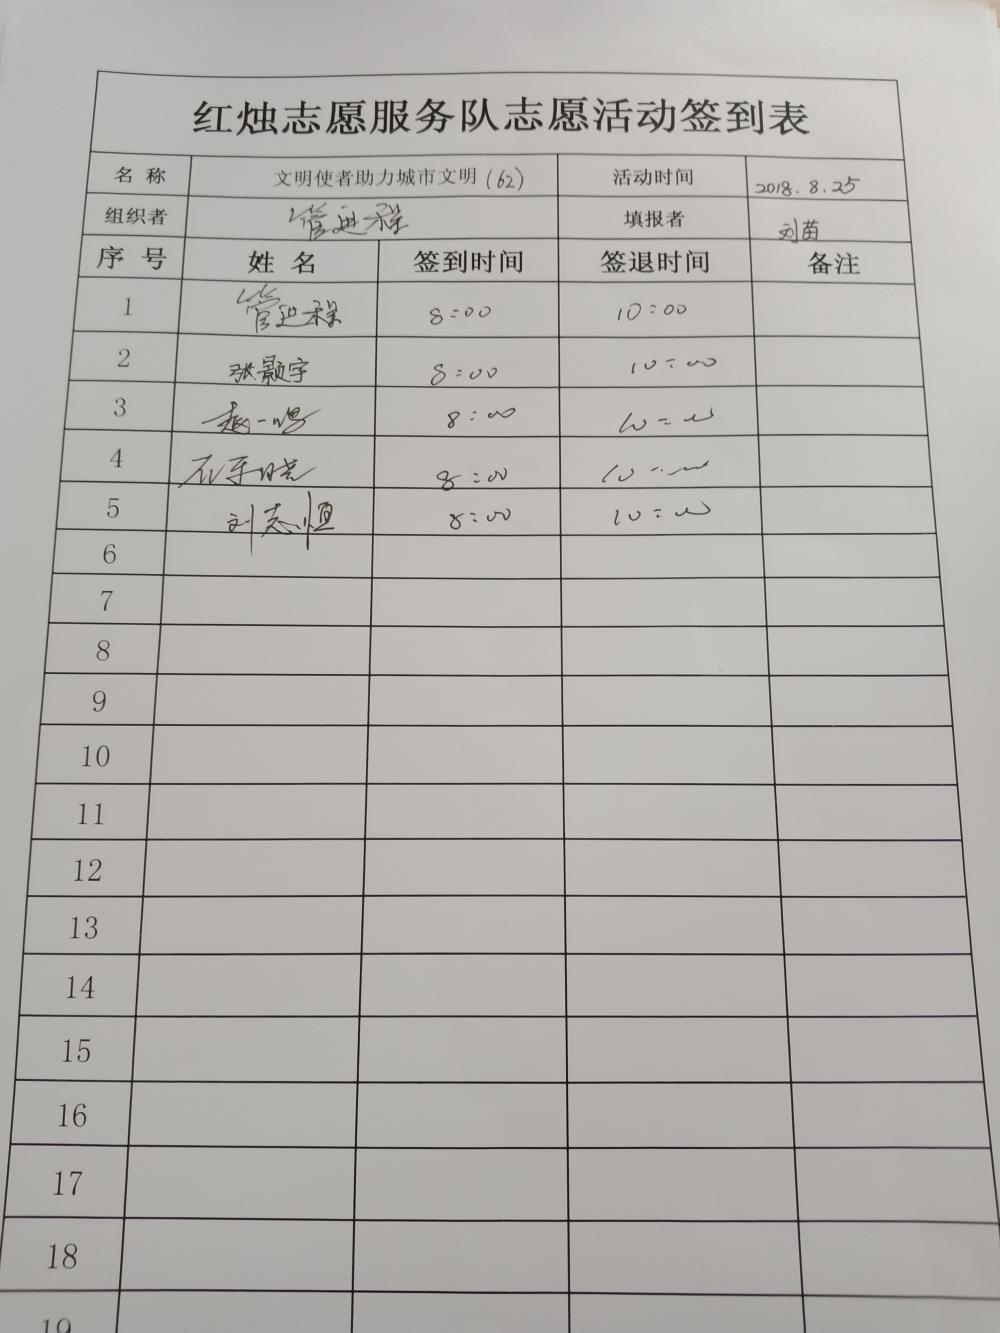 红烛志愿服务队志愿活动签到表
名 称 文明使者助力城市文明(62) 活动时间 2018.8.25
组织者 管进程 填报者 刘苗
序 号 姓 名 签到时间 签退时间 备注
1 管进程 8:00 10:00
2 张颢宇 8:00 10:00
3 8:00 10:00
4 8:00 10:00
5 刘志恒 8:00 10:00
6
7
8
9
10
11
12
13
14
15
16
17
18
19